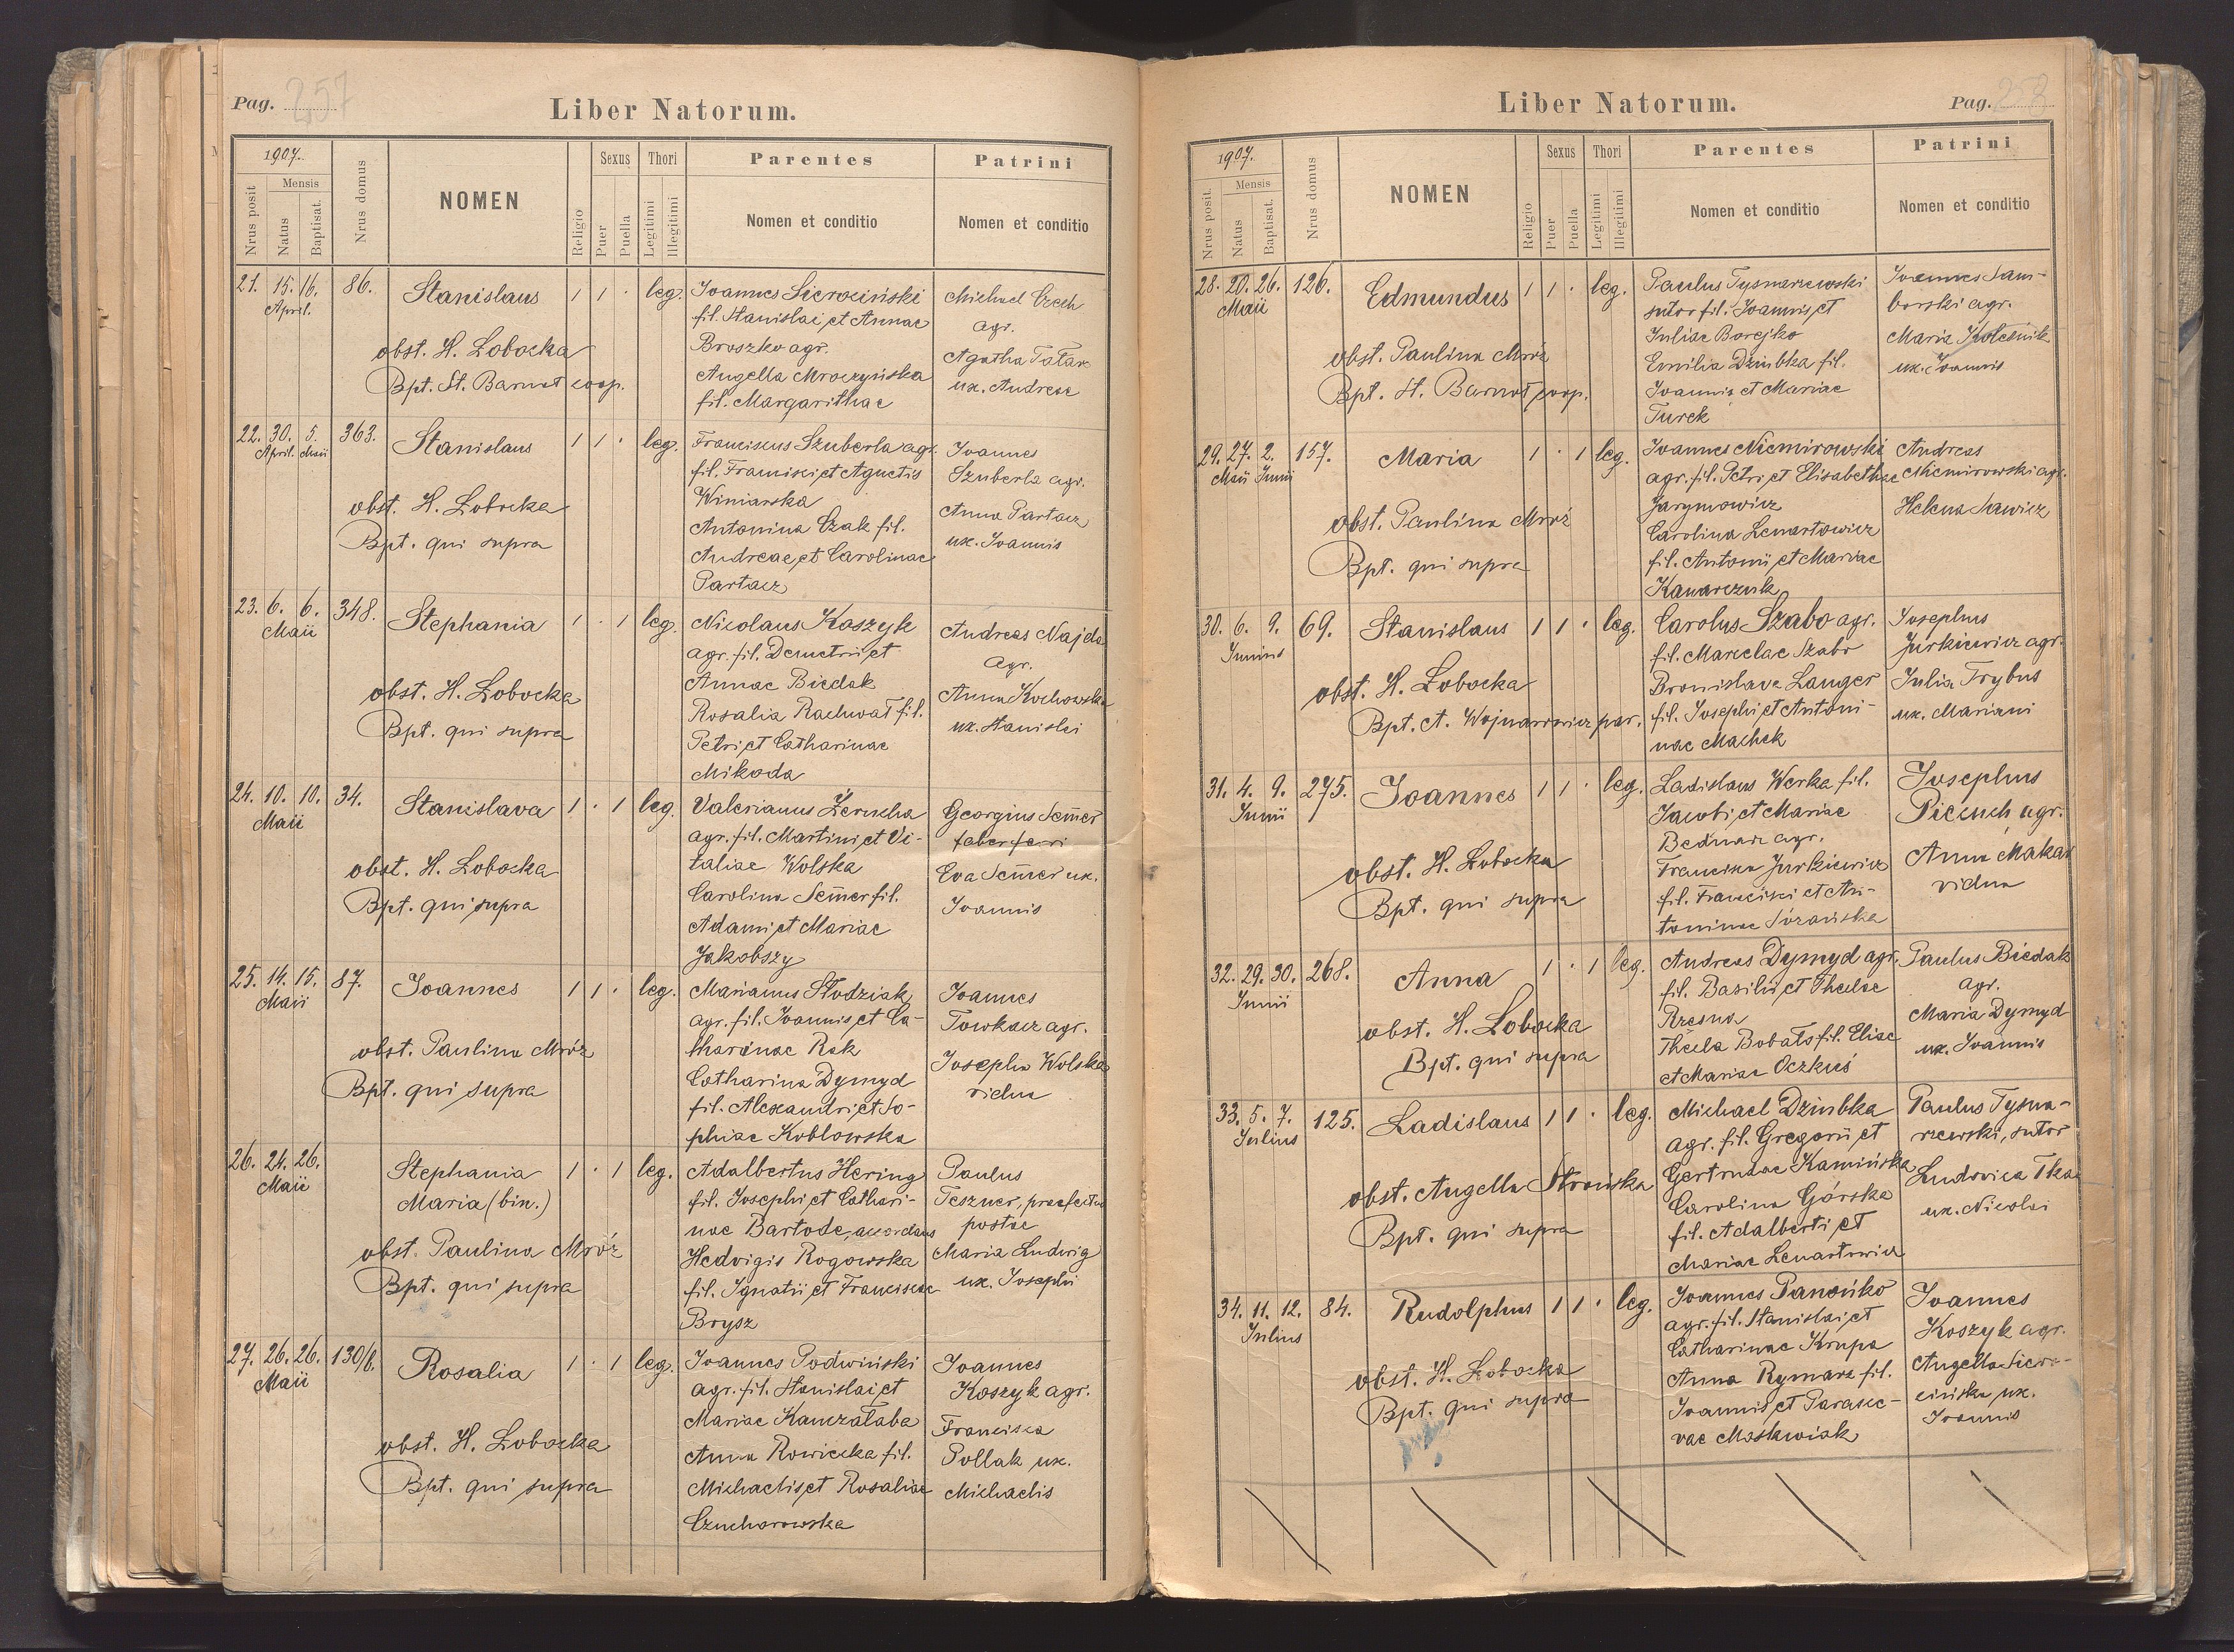 Pag. 257
Liber Natorum.
1907.
Nrus posit
Mensis
Natus
Baptisat.
Nrus domus
NOMEN
Religio
Sexus
Puer
Puella
Thori
Legitimi
Illegitimi
Parentes
Nomen et conditio
Patrini
Nomen et conditio
21. 15. 16. 86. Stanislaus 1 1 . leg.
April.
obst. H. Łobocka
Bpt. St. Barnat coop.
Joannes Sierociński
fil. Stanislai et Annae
Broszko agr.
Angella Mroczyńska
fil. Margarithae
Michael Czech
agr.
Agatha Tatar
ux. Andreae
22. 30. 5. 363. Stanislaus 1 1 . leg.
April. Maii
obst. H. Łobocka
Bpt. qui supra
Franciscus Szuberla agr.
fil. Francisci et Agnetis
Winiarska
Antonina Czak fil.
Andreae et Carolinae
Partacz
Joannes
Szuberla agr.
Anna Partacz
ux. Joannis
23. 6. 6. 348. Stephania 1 . 1 leg.
Maii
obst. H. Łobocka
Bpt. qui supra
Nicolaus Koszyk
agr. fil. Demetrii et
Annae Biedak
Rosalia Rachwał fil.
Petri et Catharinae
Mikoda
Andreas Najda
agr.
Anna Kochowska
ux. Stanislai
24. 10. 10. 34. Stanislava 1 . 1 leg.
Maii
obst. H. Łobocka
Bpt. qui supra
Valerianus Żerucha
agr. fil. Martini et Vi-
taliae Wolska
Carolina Sem̄er fil.
Adami et Mariae
Jakobszy
Georgius Sem̄er
faber ferri
Eva Sem̄er ux.
Joannis
25. 14. 15. 87. Joannes 1 1 . leg.
Maii
obst. Paulina Mróz
Bpt. qui supra
Marianus Słodziak
agr. fil. Joannis et Ca-
tharinae Rak
Catharina Dymyd
fil. Alexandri et So-
phiae Koblowska
Joannes
Towkacz agr.
Josepha Wolska
vidua
26. 24. 26. Stephania 1 . 1 leg.
Maii
Maria (bin.)
obst. Paulina Mróz
Bpt. qui supra
Adalbertus Hering
fil. Josephi et Cathari-
nae Bartode,
Hedvigis Rogowska
fil. Ignatii et Franciscae
Brysz
Paulus
Teszner, praefectus
postae
Maria Ludwig
ux. Josephi
27. 26. 26. 130/b. Rosalia 1 . 1 leg.
Maii
obst. H. Łobocka
Bpt. qui supra
Joannes Podwiński
agr. fil. Stanislai et
Mariae Kamzałaba
Anna Rowicka fil.
Michaelis et Rosaliae
Czucharowska
Joannes
Koszyk agr.
Francisca
Pollak ux.
Michaelis
Liber Natorum.
Pag. 258
1907.
Nrus posit.
Mensis
Natus
Baptisat.
Nrus domus
NOMEN
Religio
Sexus
Puer
Puella
Thori
Legitimi
Illegitimi
Parentes
Nomen et conditio
Patrini
Nomen et conditio
28. 20. 26. 126. Edmundus 1 1 . leg.
Maii
obst. Paulina Mróz
Bpt. St. Barnat coop.
Paulus Tysmarzewski
sutor fil. Joannis et
Juliae Borejko
Emilia Dziubka fil.
Joannis et Mariae
Turek
Joannes Sam-
borski agr.
Maria Kolesnik
ux. Joannis
29. 27. 2. 157. Maria 1 . 1 leg.
Maii Junii
obst. Paulina Mróz
Bpt. qui supra
Joannes Niemirowski
agr. fil. Petri et Elisabethae
Jarymowicz
Carolina Lenartowicz
fil. Antonii et Mariae
Kanarczuk
Andreas
Niemirowski agr.
Helena Sawicz
30. 6. 9. 69. Stanislaus 1 1 . leg.
Junius
obst. H. Łobocka
Bpt. A. Wojnarowicz par.
Carolus Szabo agr.
fil. Marcelae Szabo
Bronislava Langer
fil. Josephi et Antoni-
nae Machek
Josephus
Jurkiewicz agr.
Julia Trybus
ux. Mariani
31. 4. 9. 275. Joannes 1 1 . leg.
Junii
obst. H. Łobocka
Bpt. qui supra
Ladislaus Werka fil.
Jacobi et Mariae
Bednarz agr.
Francisca Jurkiewicz
fil. Francisci et An-
toninae Sozańska
Josephus
Pieczuch agr.
Anna Makar
vidua
32. 29. 30. 268. Anna 1 . 1 leg.
Junii
obst. H. Łobocka
Bpt. qui supra
Andreas Dymyd agr.
fil. Basilii et Theclae
Rzesna
Thecla Bobato fil. Eliae
et Mariae Oczkuś
Paulus Biedak
agr.
Maria Dymyd
ux. Joannis
33. 5. 7. 125. Ladislaus 1 1 . leg.
Julius
obst. Angella Strońska
Bpt. qui supra
Michael Dziubka
agr. fil. Gregorii et
Gertrudae Kamińska
Carolina Górska
fil. Adalberti et
Mariae Lenartowicz
Paulus Tysma-
rzewski, sutor
Ludovica Tkacz
ux. Nicolai
34. 11. 12. 84. Rudolphus 1 1 . leg.
Julius
obst. H. Łobocka
Bpt. qui supra
Joannes Panońko
agr. fil. Stanislai et
Catharinae Krupa
Anna Rymarz fil.
Joannis et Parasce-
vae Moskwiak
Joannes
Koszyk agr.
Angella Siero-
cińska ux.
Joannis